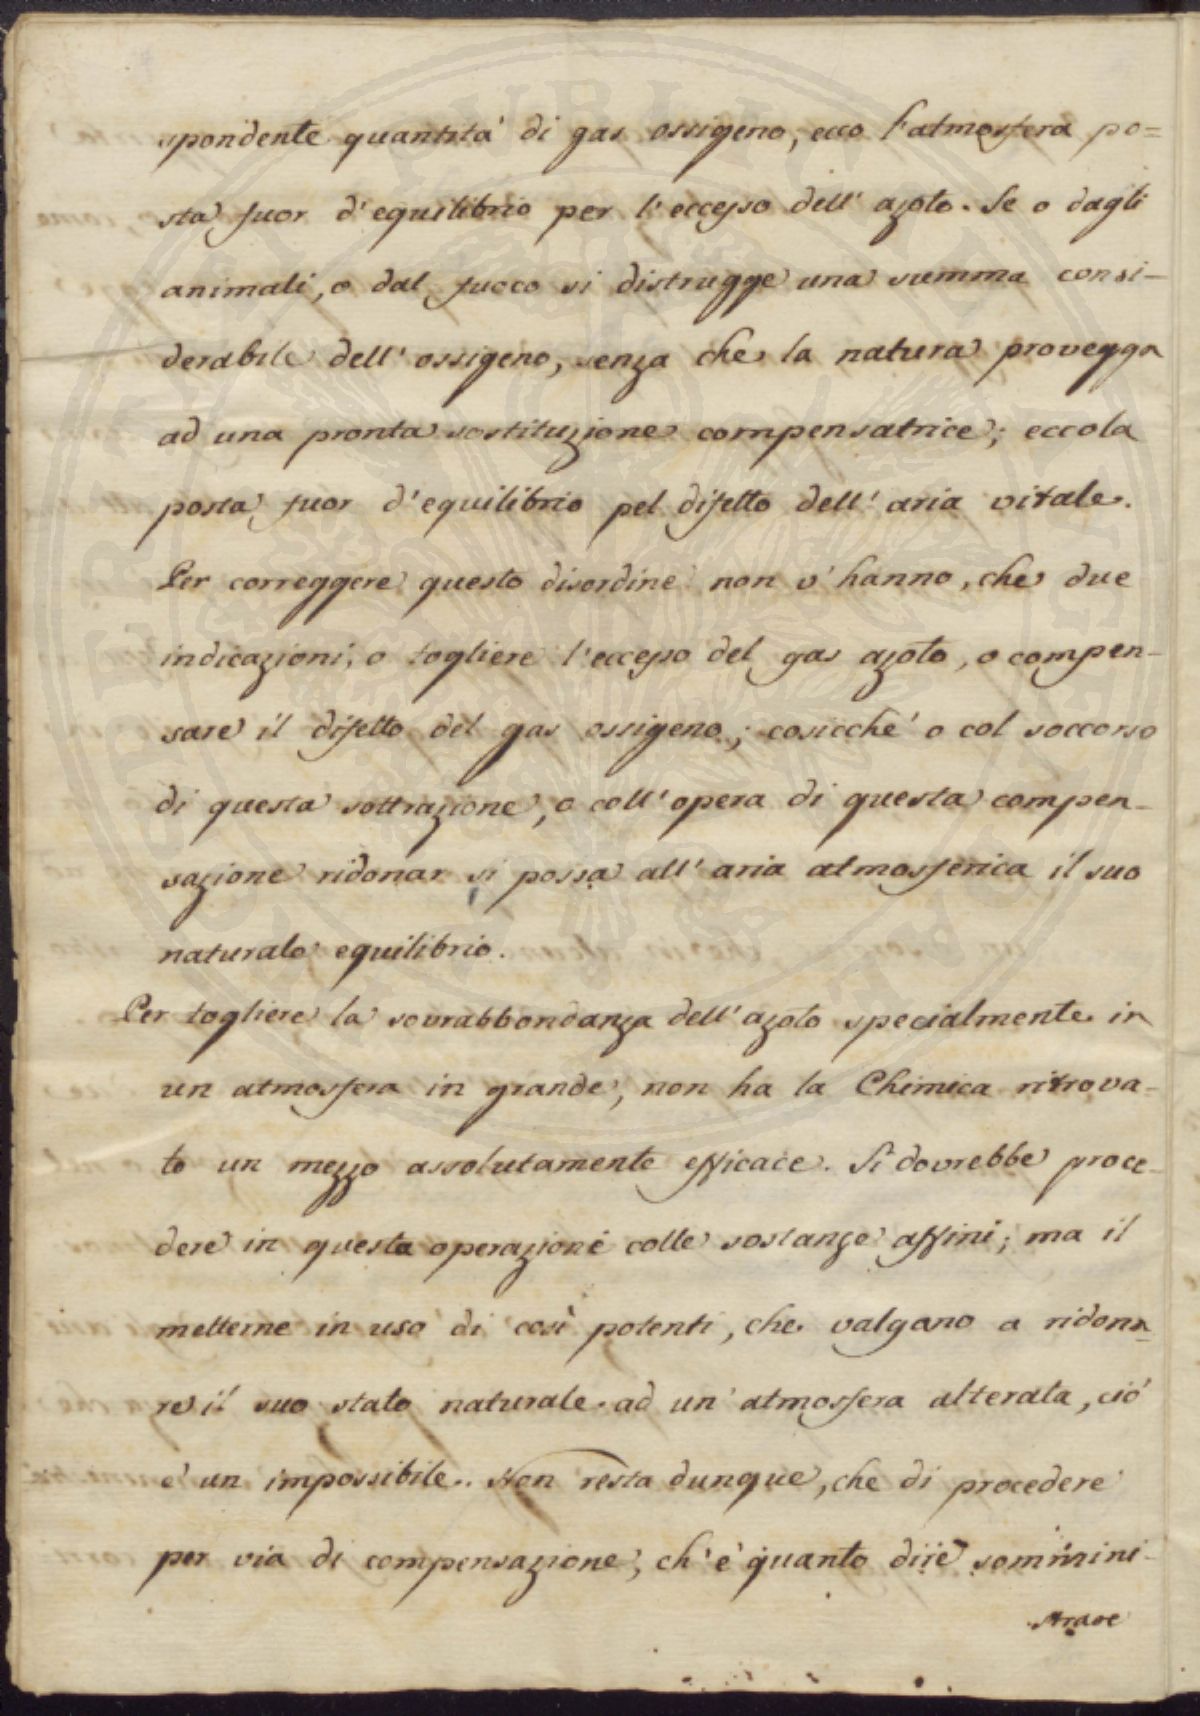 spondente quantità di gas ossigeno, ecco l'atmosfera po=
sta fuor d'equilibrio per l'eccesso dell'azoto. Se o dagli
animali, o dal fuoco si distrugge una summa consi-
derabile dell'ossigeno, senza che la natura provegga
ad una pronta sostituzione compensatrice; eccola
posta fuor d'equilibrio pel difetto dell'aria vitale.
Per correggere questo disordine non v'hanno, che due
indicazioni; o togliere l'eccesso del gas azoto, o compen-
sare il difetto del gas ossigeno; cosicche' o col soccorso
di questa sottrazione, o coll'opera di questa compen-
sazione ridonar si possa all'aria atmosferica il suo
naturale equilibrio.
Per togliere la sovrabbondanza dell'azoto specialmente in
un atmosfera in grande, non ha la Chimica ritrova-
to un mezzo assolutamente efficace. Si dovrebbe proce-
dere in questa operazione colle sostanze affini; ma il
metterne in uso di così potenti, che valgano a ridona=
re il suo stato naturale ad un'atmosfera alterata, ciò
è un impossibile. Non resta dunque, che di procedere
per via di compensazione, ch'e' quanto dire sommini-
strare